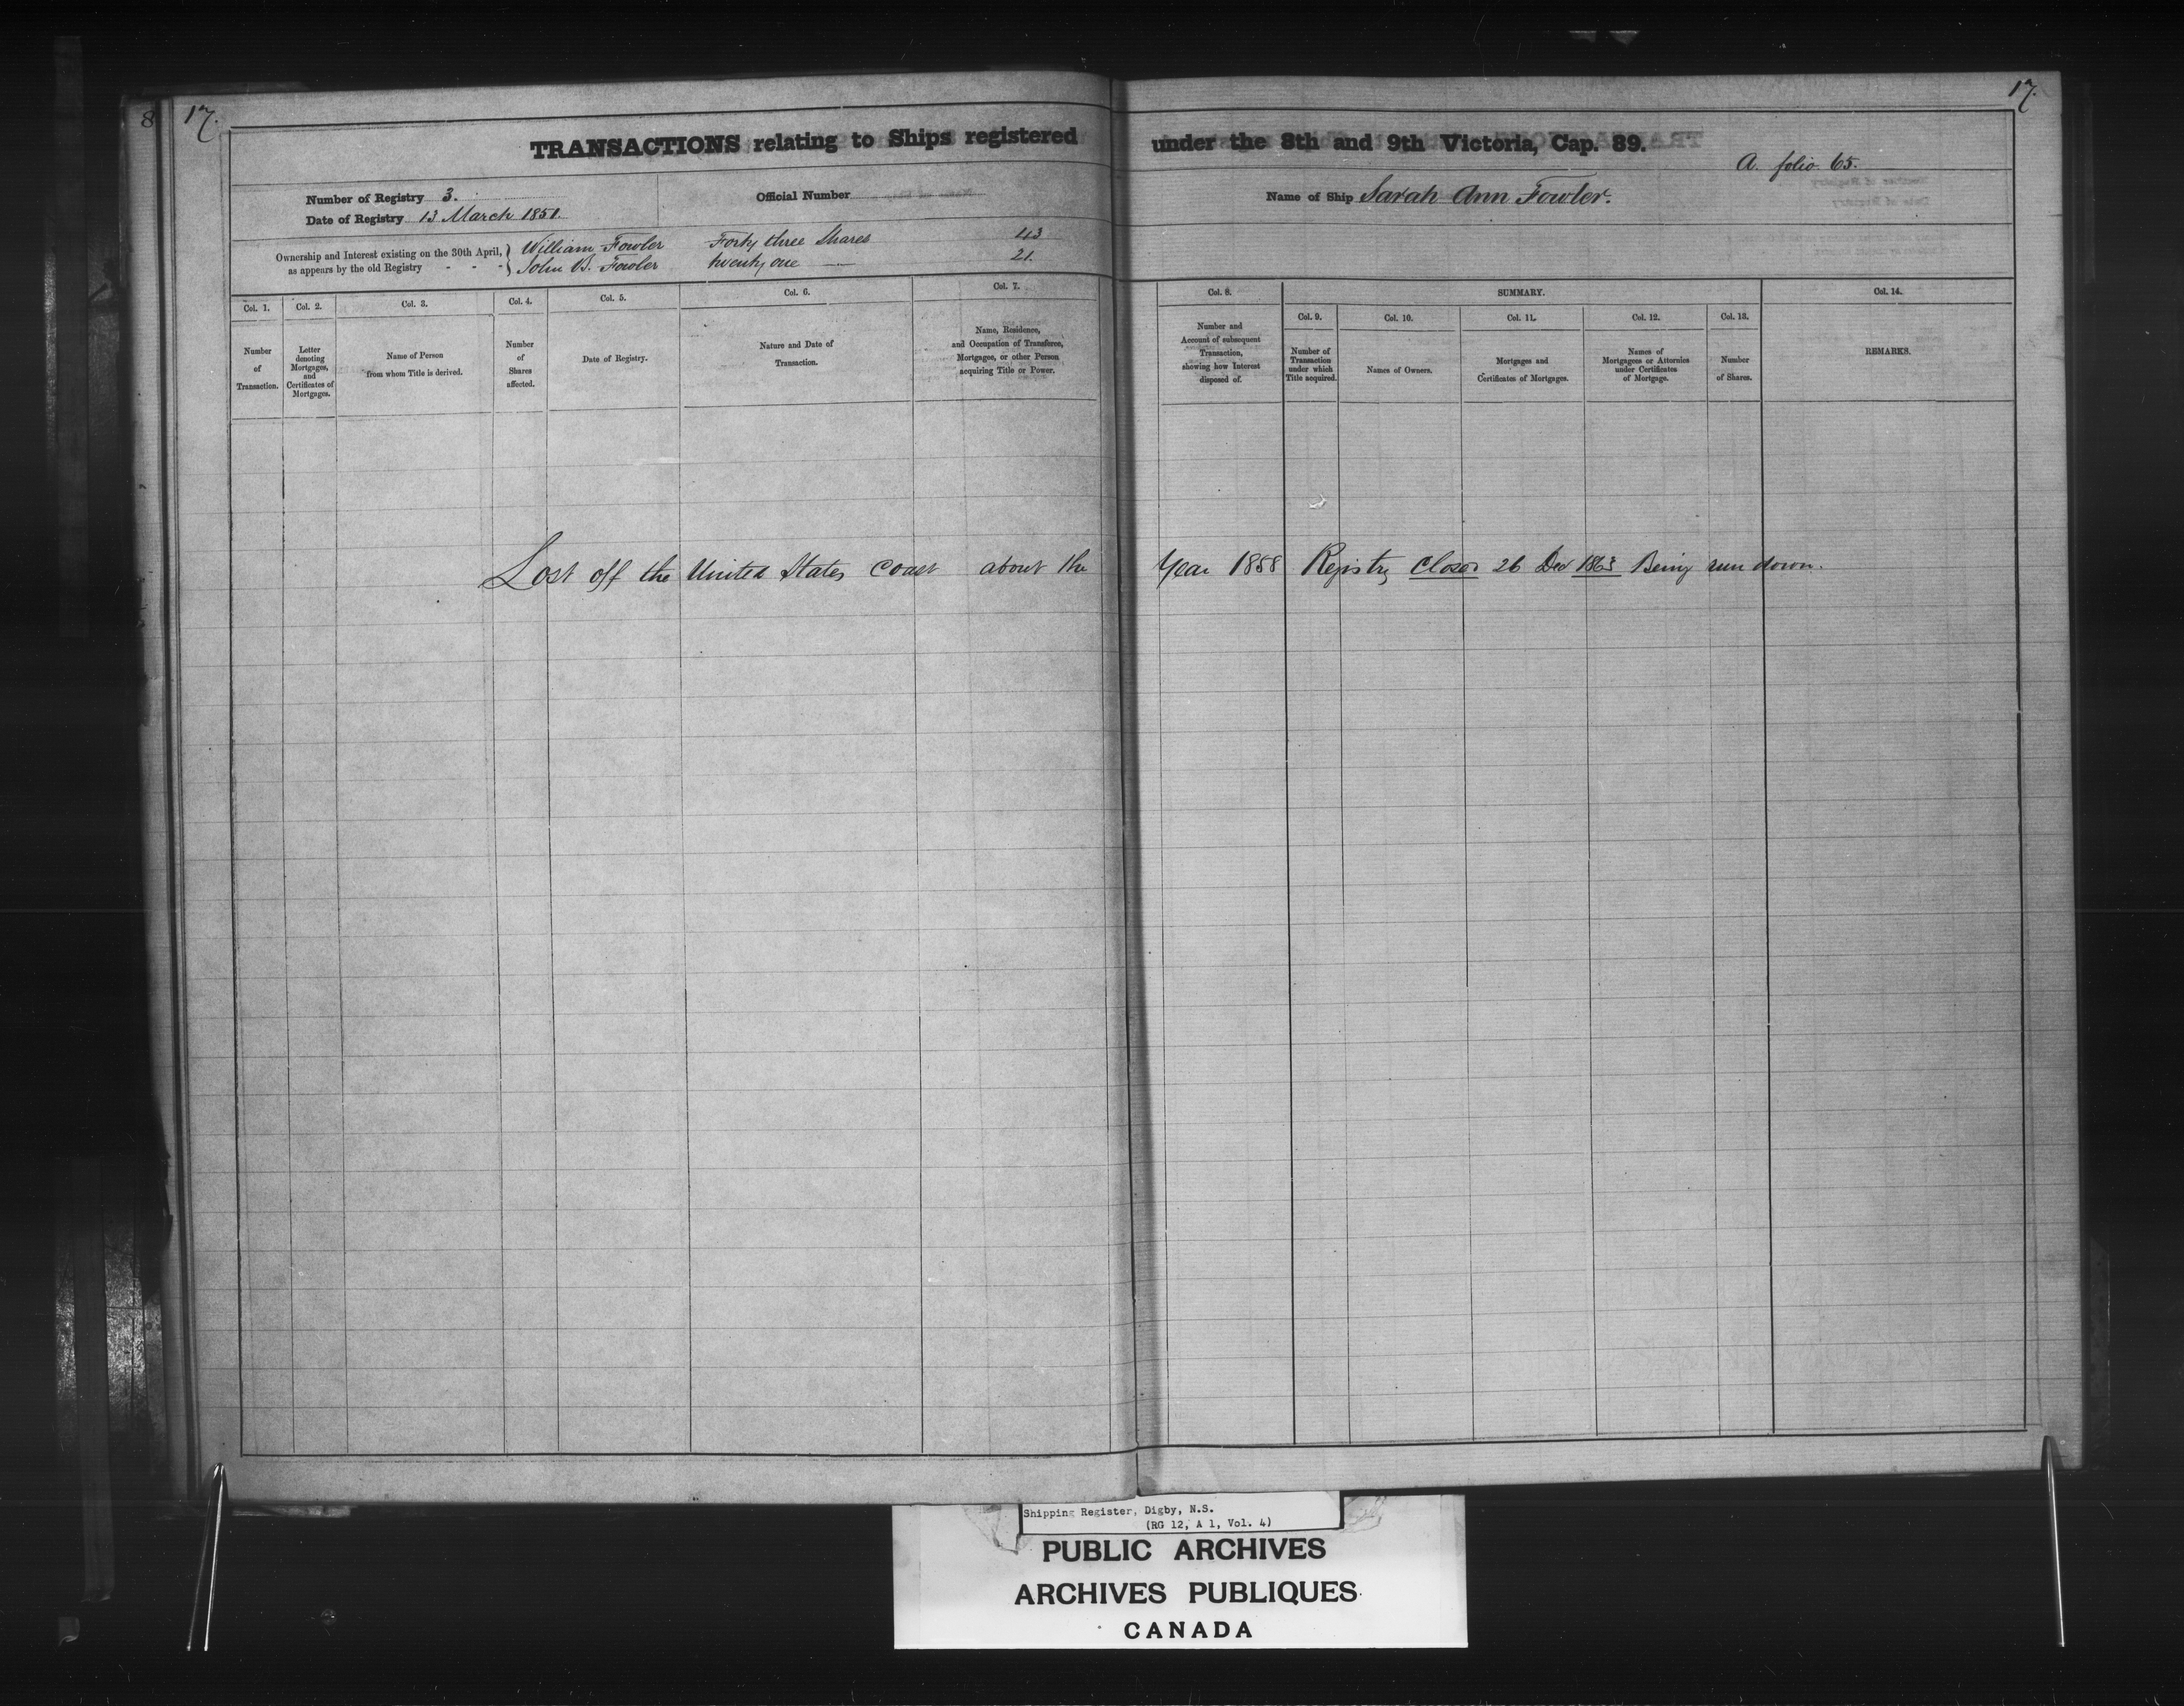 8 17. 17.
TRANSACTIONS relating to Ships registered under the 8th and 9th Victoria, Cap. 89.
A. folio 65.
Number of Registry 3. Official Number Name of Ship Sarah Ann Fowler.
Date of Registry 13 March 1851.
Ownership and Interest existing on the 30th April, as appears by the old Registry - - -
William Fowler Forty three Shares 43
John B. Fowler twenty one 21.
Col. 1. Col. 2. Col. 3. Col. 4. Col. 5. Col. 6. Col. 7. Col. 8. SUMMARY. Col. 14.
Col. 9. Col. 10. Col. 11. Col. 12. Col. 13.
Number of Transaction.
Letter denoting Mortgages, and Certificates of Mortgages.
Name of Person from whom Title is derived.
Number of Shares affected.
Date of Registry.
Nature and Date of Transaction.
Name, Residence, and Occupation of Transferee, Mortgagee, or other Person acquiring Title or Power.
Number and Account of subsequent Transaction, showing how Interest disposed of.
Number of Transaction under which Title acquired.
Names of Owners.
Mortgages and Certificates of Mortgages.
Names of Mortgagees or Attornies under Certificates of Mortgage.
Number of Shares.
REMARKS.
Lost off the United States Coast about the Year 1858 Registry Closed 26 Dec 1863 Being run down.
Shipping Register, Digby, N.S.
(RG 12, A 1, Vol. 4)
PUBLIC ARCHIVES
ARCHIVES PUBLIQUES
CANADA